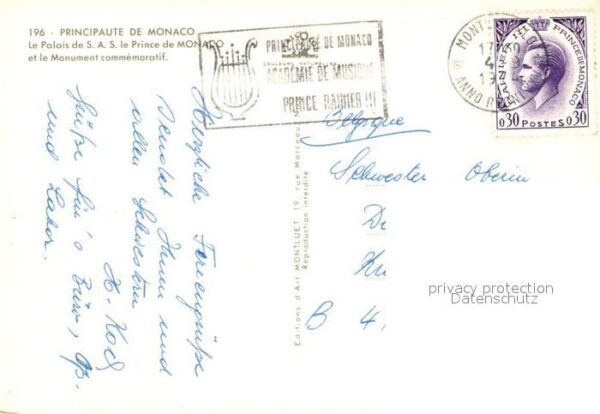 196 - PRINCIPAUTE DE MONACO
Le Palais de S. A. S. le Prince de MONACO
et le Monument commémoratif.
PRINCIPAUTÉ DE MONACO
ACADÉMIE DE MUSIQUE
PRINCE RAINIER III
MONTE
17
RAINIER III PRINCE DE MONACO
0,30 POSTES 0,30
Herzliche Feriengrüße
sendet Ihnen und
allen Schwestern
H. Koch
Grüße für's Büro,
und Labor.
Editions d'Art MONTLUET 19, rue Marceau
Reproduction interdite
Belgique
Schwester Oberin
B 4
privacy protection
Datenschutz